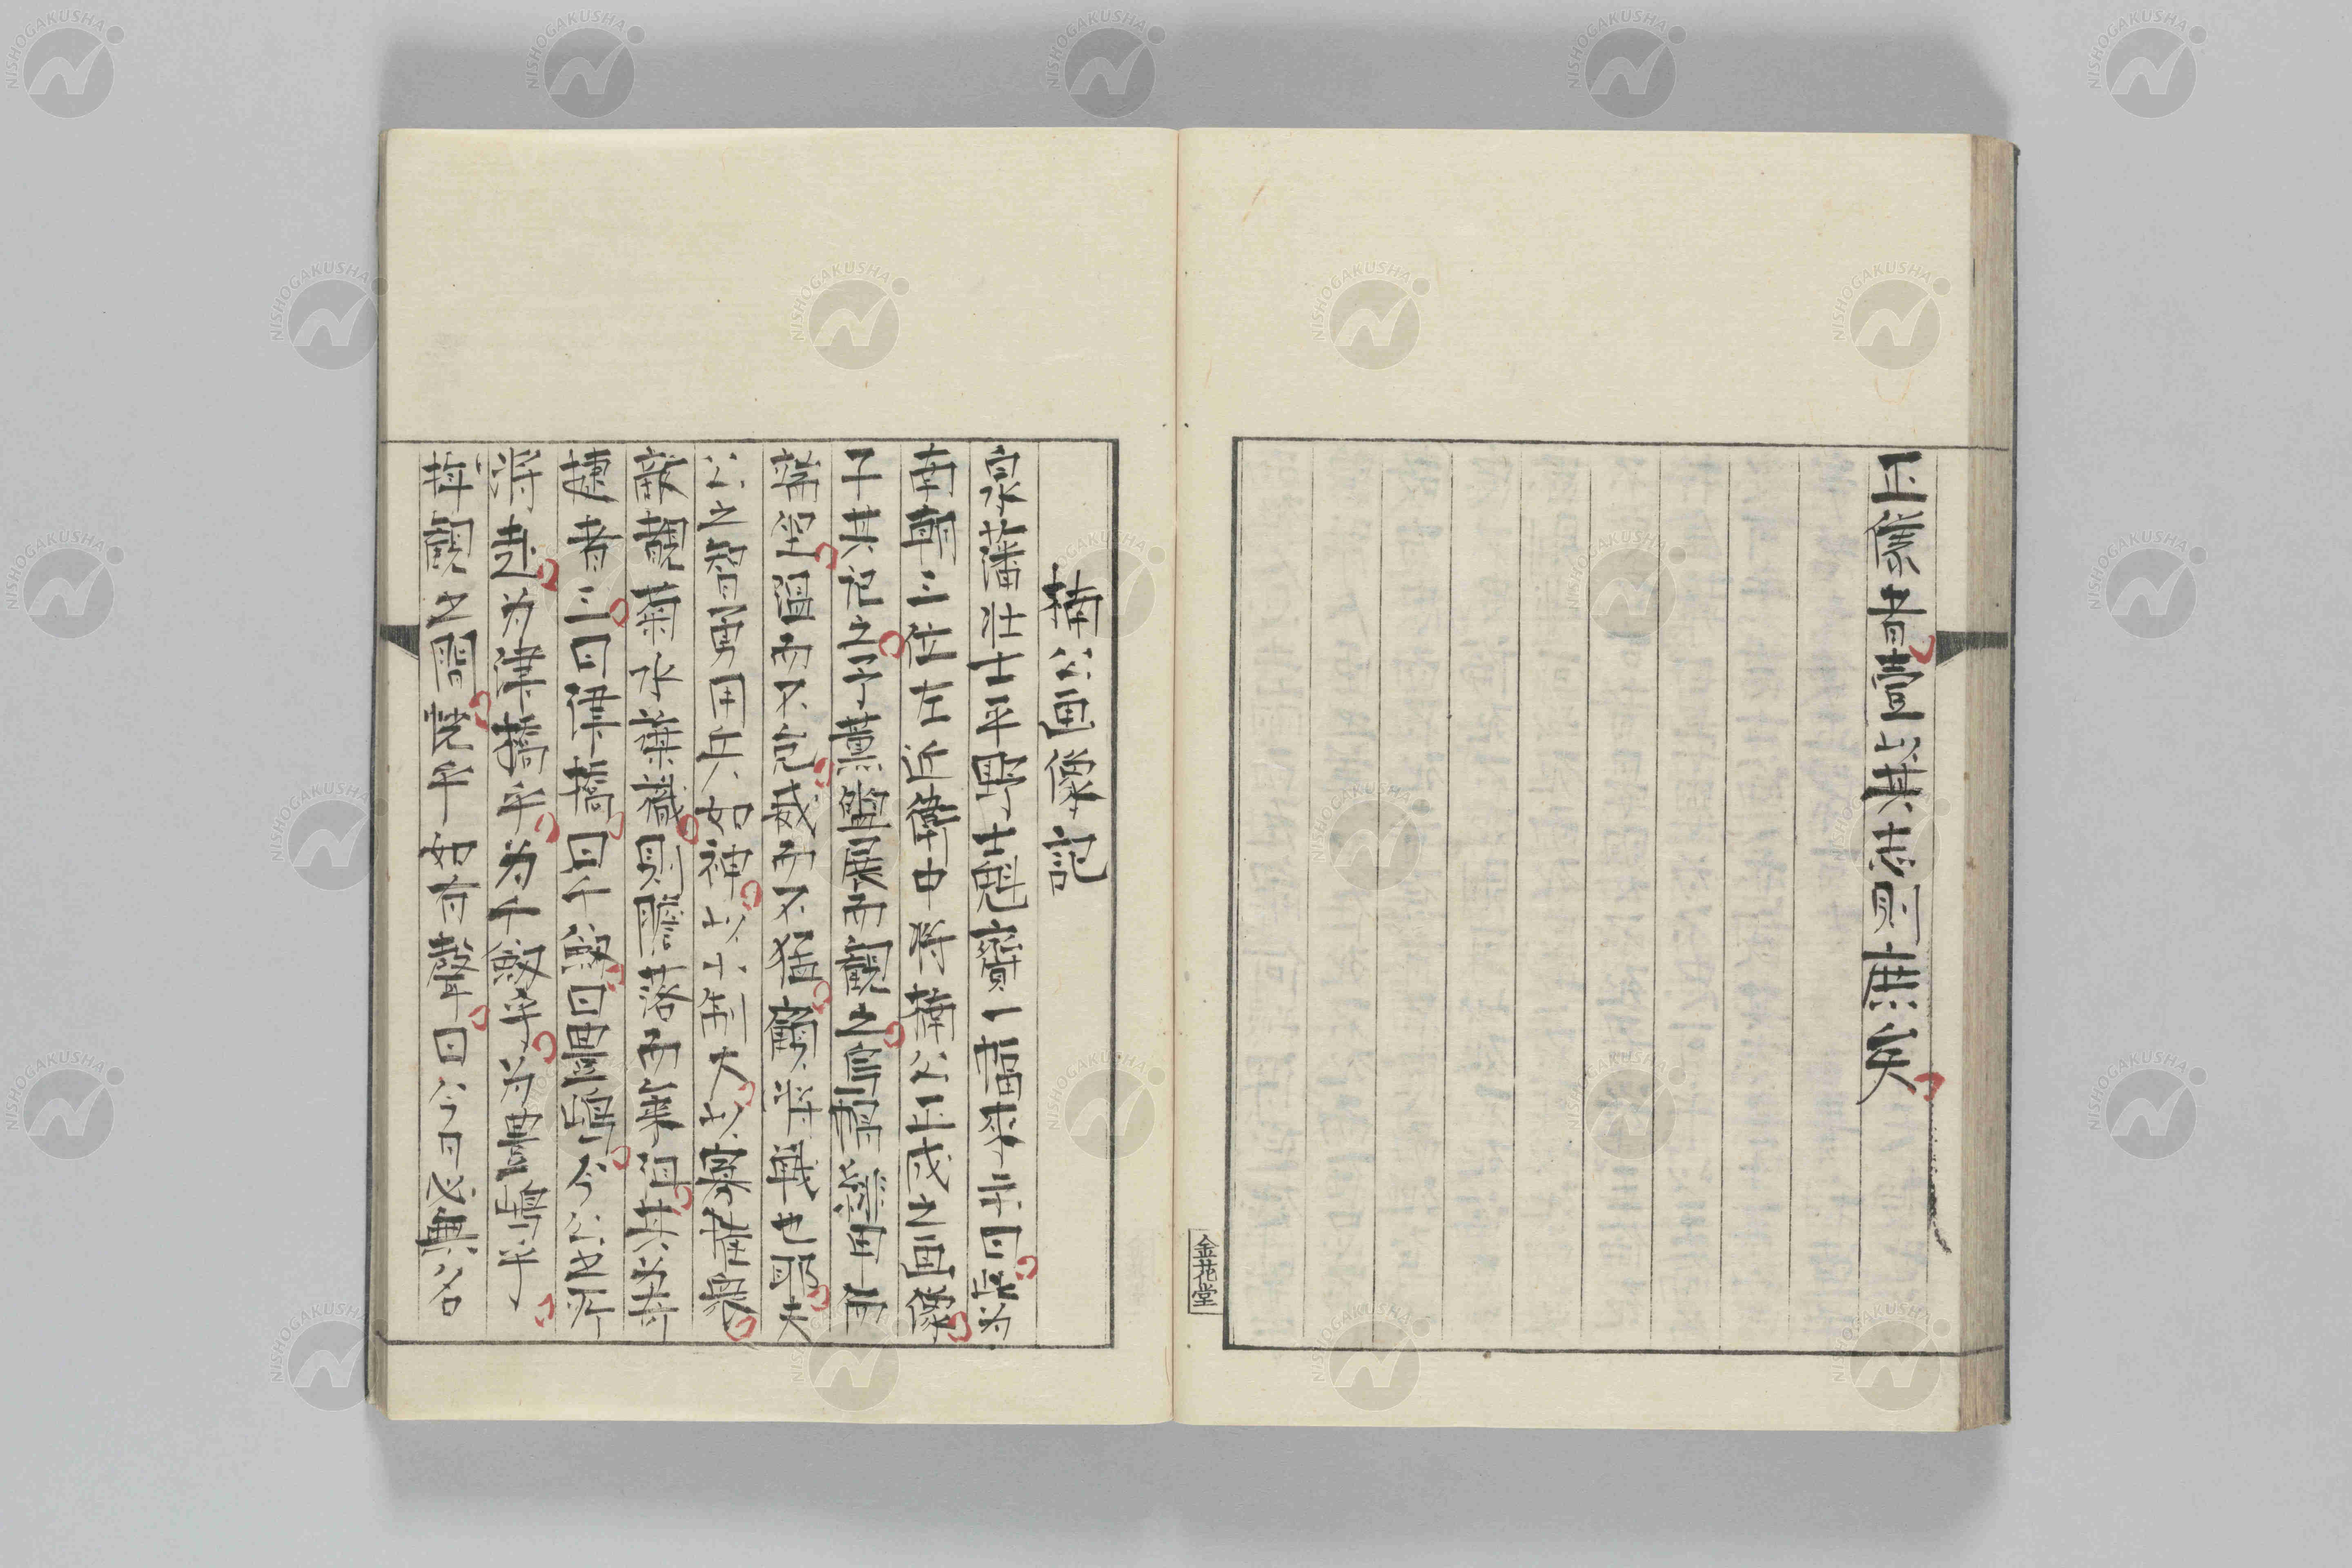 正儀者豈以其志則無矣
金花堂
楠公画像記
泉藩壮士平野士魁齎一幅来示曰是為
南朝三位左近衛中将楠公正成之画像
子其記之予薫盥展而観之官帯幞甲而
端坐温而不危威而不猛願将戦也耶夫
公之智勇用兵如神以小制大以寡摧衆
敵覩菊水旗幟則膽落而気沮其尤
捷者三曰津橋曰千劔曰豊嶋今公之所
将赴為津橋乎為千劔乎為豊嶋乎
拝観之間慌乎如有聲曰公今日必無